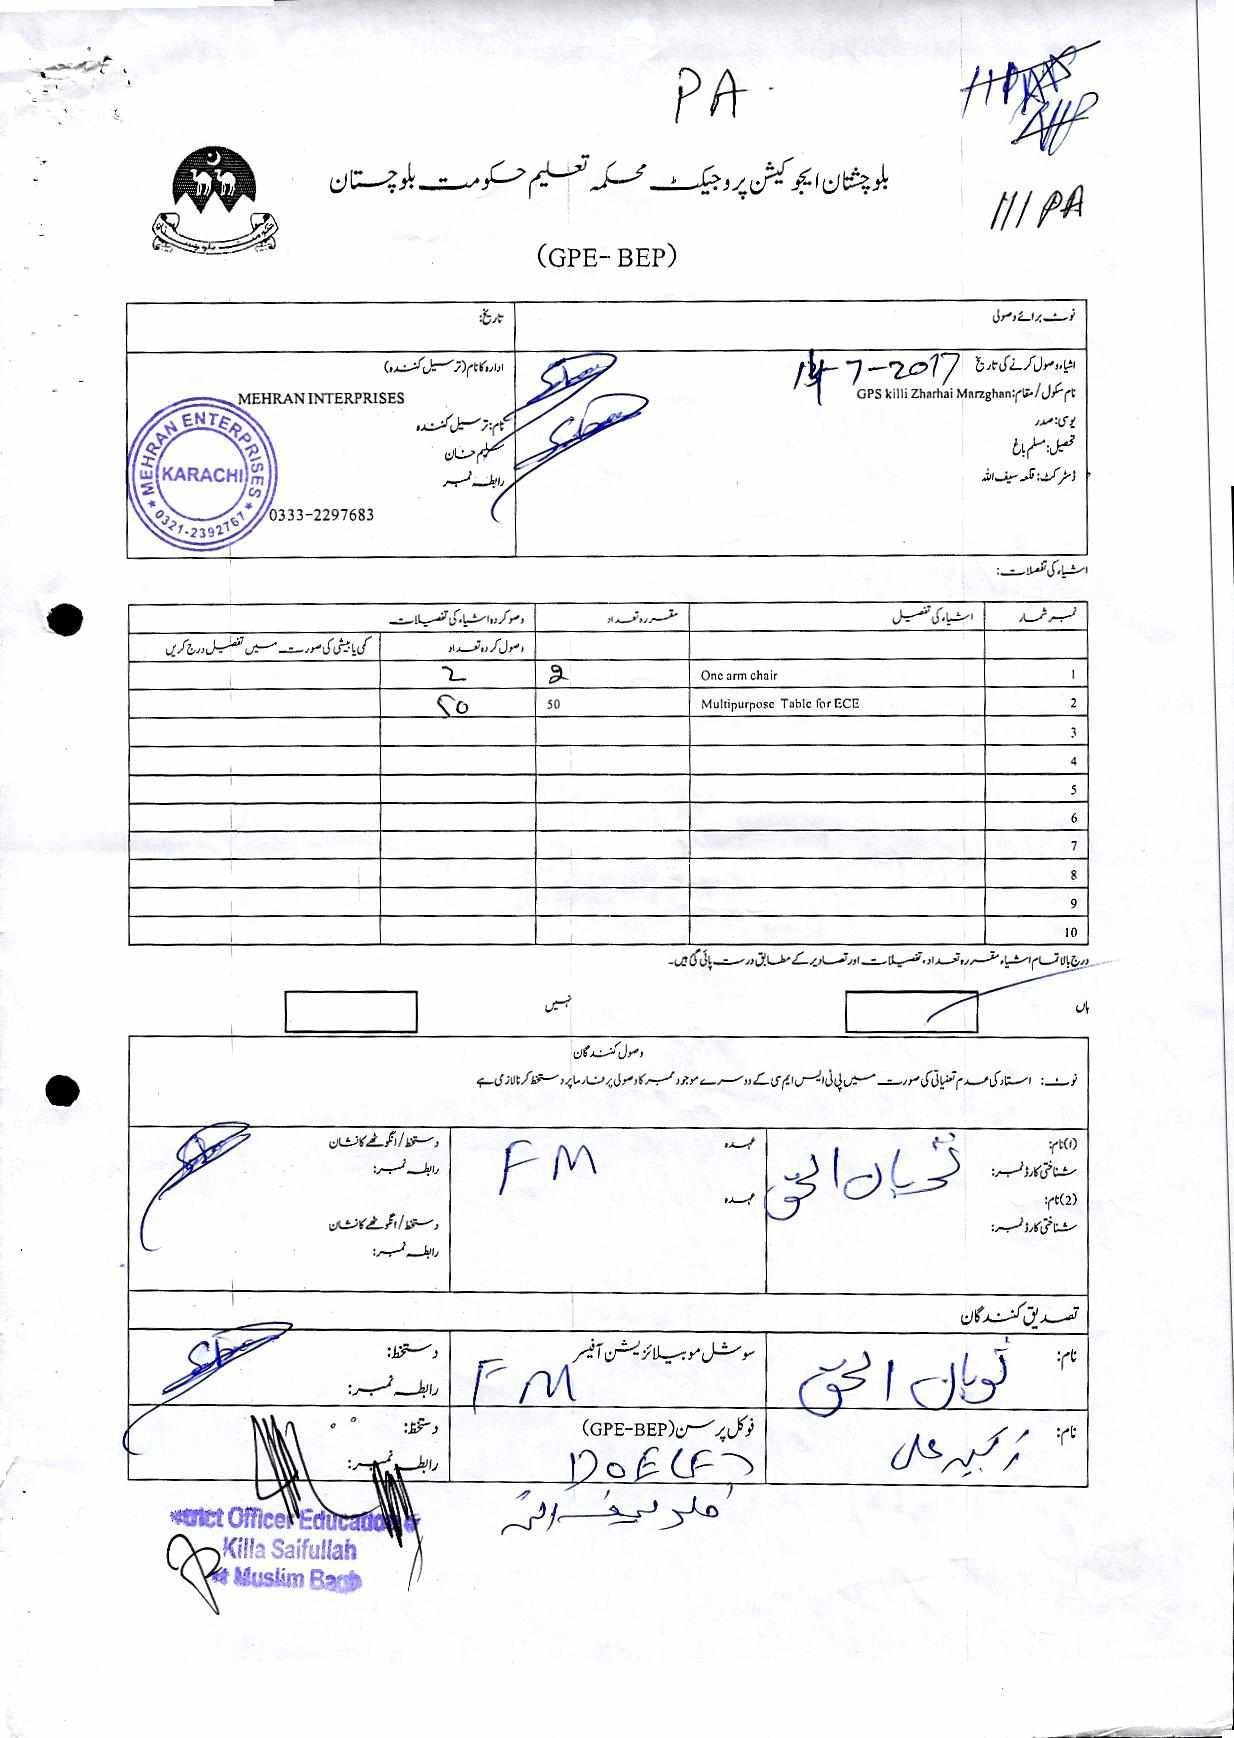 PA
111 PA
بلوچستان ایجوکیشن پروجیکٹ محکمہ تعلیم حکومت بلوچستان
(GPE- BEP)
نوٹ برائے وصولی
تاریخ:
اشیاء وصول کرنے کی تاریخ 14-7-2017
نام سکول/مقام: GPS killi Zharhai Marzghan
یو سی: صدر
تحصیل: مسلم باغ
ڈسٹرکٹ: قلعہ سیف اللہ
ادارہ کا نام (ترسیل کنندہ)
MEHRAN INTERPRISES
نام: ترسیل کنندہ
سلیم خان
رابطہ نمبر
0333-2297683
MEHRAN ENTERPRISES
KARACHI
0321-2392767
اشیاء کی تفصلات:
نمبر شمار اشیاء کی تفصیل مقررہ تعداد وصو کردہ اشیاء کی تفصیلات
وصول کردہ تعداد کمی یا بیشی کی صورت میں تفصیل درج کریں
1 One arm chair 2 2
2 Multipurpose Table for ECE 50 50
3
4
5
6
7
8
9
10
درج بالا تمام اشیاء مقررہ تعداد، تفصیلات اور تصاویر کے مطابق درست پائی گئی ہیں۔
ہاں نہیں
وصول کنندگان
نوٹ: استاد کی عدم تعنیاتی کی صورت میں پی ٹی ایس ایم سی کے دوسرے موجود ممبر کا وصولی پر فارما پر دستخط کرنا لازمی ہے
(1) نام: ثوبان الحق عہدہ FM دستخط/انگوٹھے کا نشان
شناختی کارڈ نمبر: رابطہ نمبر:
(2) نام: عہدہ دستخط/انگوٹھے کا نشان
شناختی کارڈ نمبر: رابطہ نمبر:
تصدیق کنندگان
نام: ثوبان الحق سوشل موبیلائزیشن آفیسر FM دستخط:
رابطہ نمبر:
نام: فوکل پرسن (GPE-BEP) دستخط:
DOE (F) رابطہ نمبر:
قلعہ سیف اللہ
District Officer Education
Killa Saifullah
at Muslim Bagh